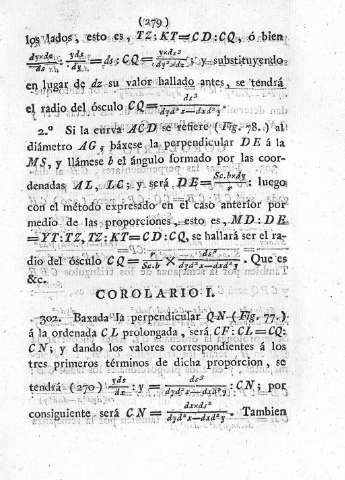 (279)
los lados, esto es, TZ:KT=CD:CQ, ó bien
dy×dz/ds : yds/ds = ds; CQ = y×ds²/dy²×dz; y substituyendo
en lugar de dz su valor hallado antes, se tendrá
el radio del ósculo CQ = ds³/dyd²x—dxd²y.
2.º Si la curva ACD se refiere (Fig. 78.) al
diámetro AG, báxese la perpendicular DE á la
MS, y llámese b el ángulo formado por las coor-
denadas AL, LC; y será DE = Sc.b×dy/r: luego
con el método expresado en el caso anterior por
medio de las proporciones, esto es, MD:DE
=YT:TZ, TZ:KT=CD:CQ, se hallará ser el ra-
dio del ósculo CQ = r/Sc.b × ds³/dyd²x—dxd²y. Que es
&c.
COROLARIO I.
302. Baxada la perpendicular QN (Fig. 77.)
á la ordenada CL prolongada, será CF:CL=CQ:
CN; y dando los valores correspondientes á los
tres primeros términos de dicha proporcion, se
tendrá (270) yds/dx : y = ds³/dyd²x—dxd²y : CN; por
consiguiente será CN = dx×ds²/dyd²x—dxd²y. Tambien